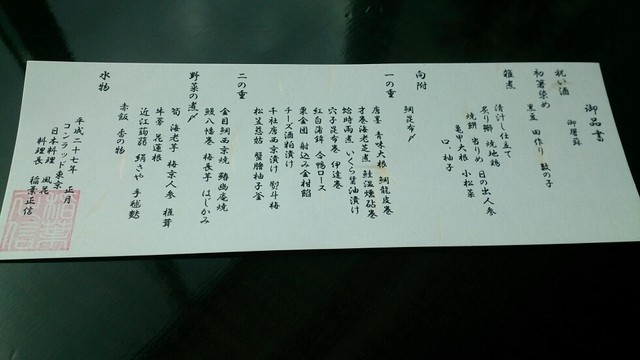 御品書
祝い酒
御屠蘇
初箸染め
黒豆 田作り 数の子
雑煮
清汁し仕立て
炙り鰤 焼地鶏
焼餅 当りめ 日の出人参
亀甲大根 小松菜
口、柚子
向附
鯛昆布〆
一の重
唐墨 青味大根 鯛龍皮巻
才巻海老芝煮 鮭温燻砧巻
蛤時雨煮 いくら醤油漬け
穴子昆布巻 伊達巻
紅白蒲鉾 合鴨ロース
栗金団 射込み金柑餡
チーズ酒粕漬け
二の重
千社唐西京漬け 熨斗梅
松笠慈姑 蟹膾柚子釜
金目鯛西京焼 鰆幽庵焼
鰻八幡巻 梅長芋 はじかみ
野菜の煮〆
筍 海老芋 梅京人参 椎茸
牛蒡 花蓮根
近江蒟蒻 絹さや 手毬麩
赤飯 香の物
水物
平成二十七年 正月
コンラッド東京
日本料理 風花
料理長 稲葉正信